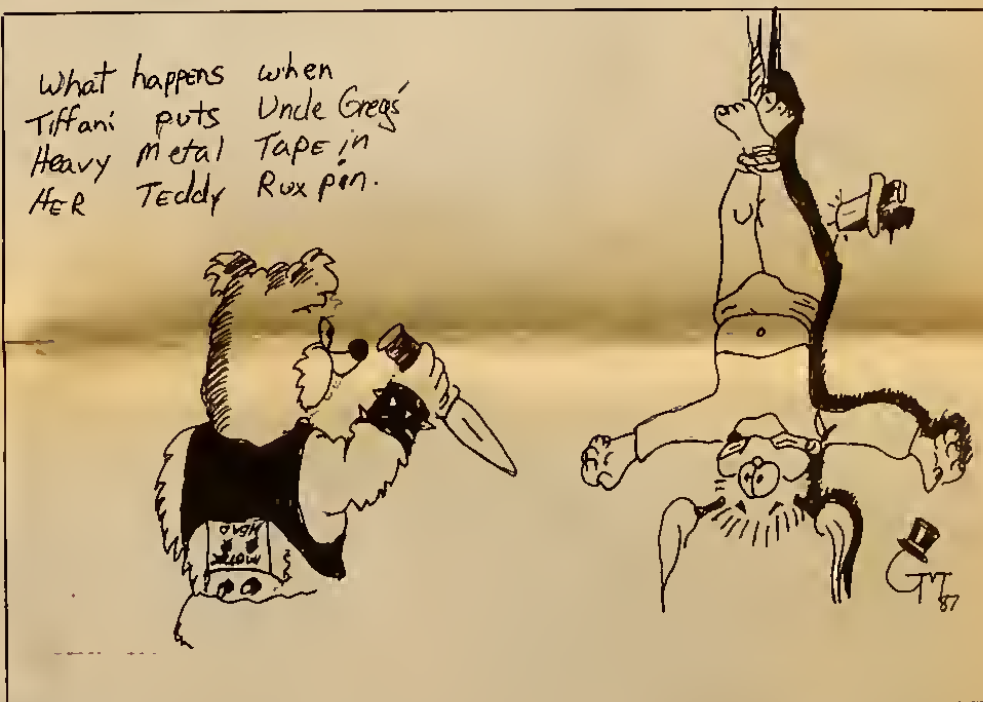 What happens when
Tiffani puts Uncle Greg's
Heavy Metal Tape in
HER Teddy Ruxpin.
MOTOR
HEAD
87